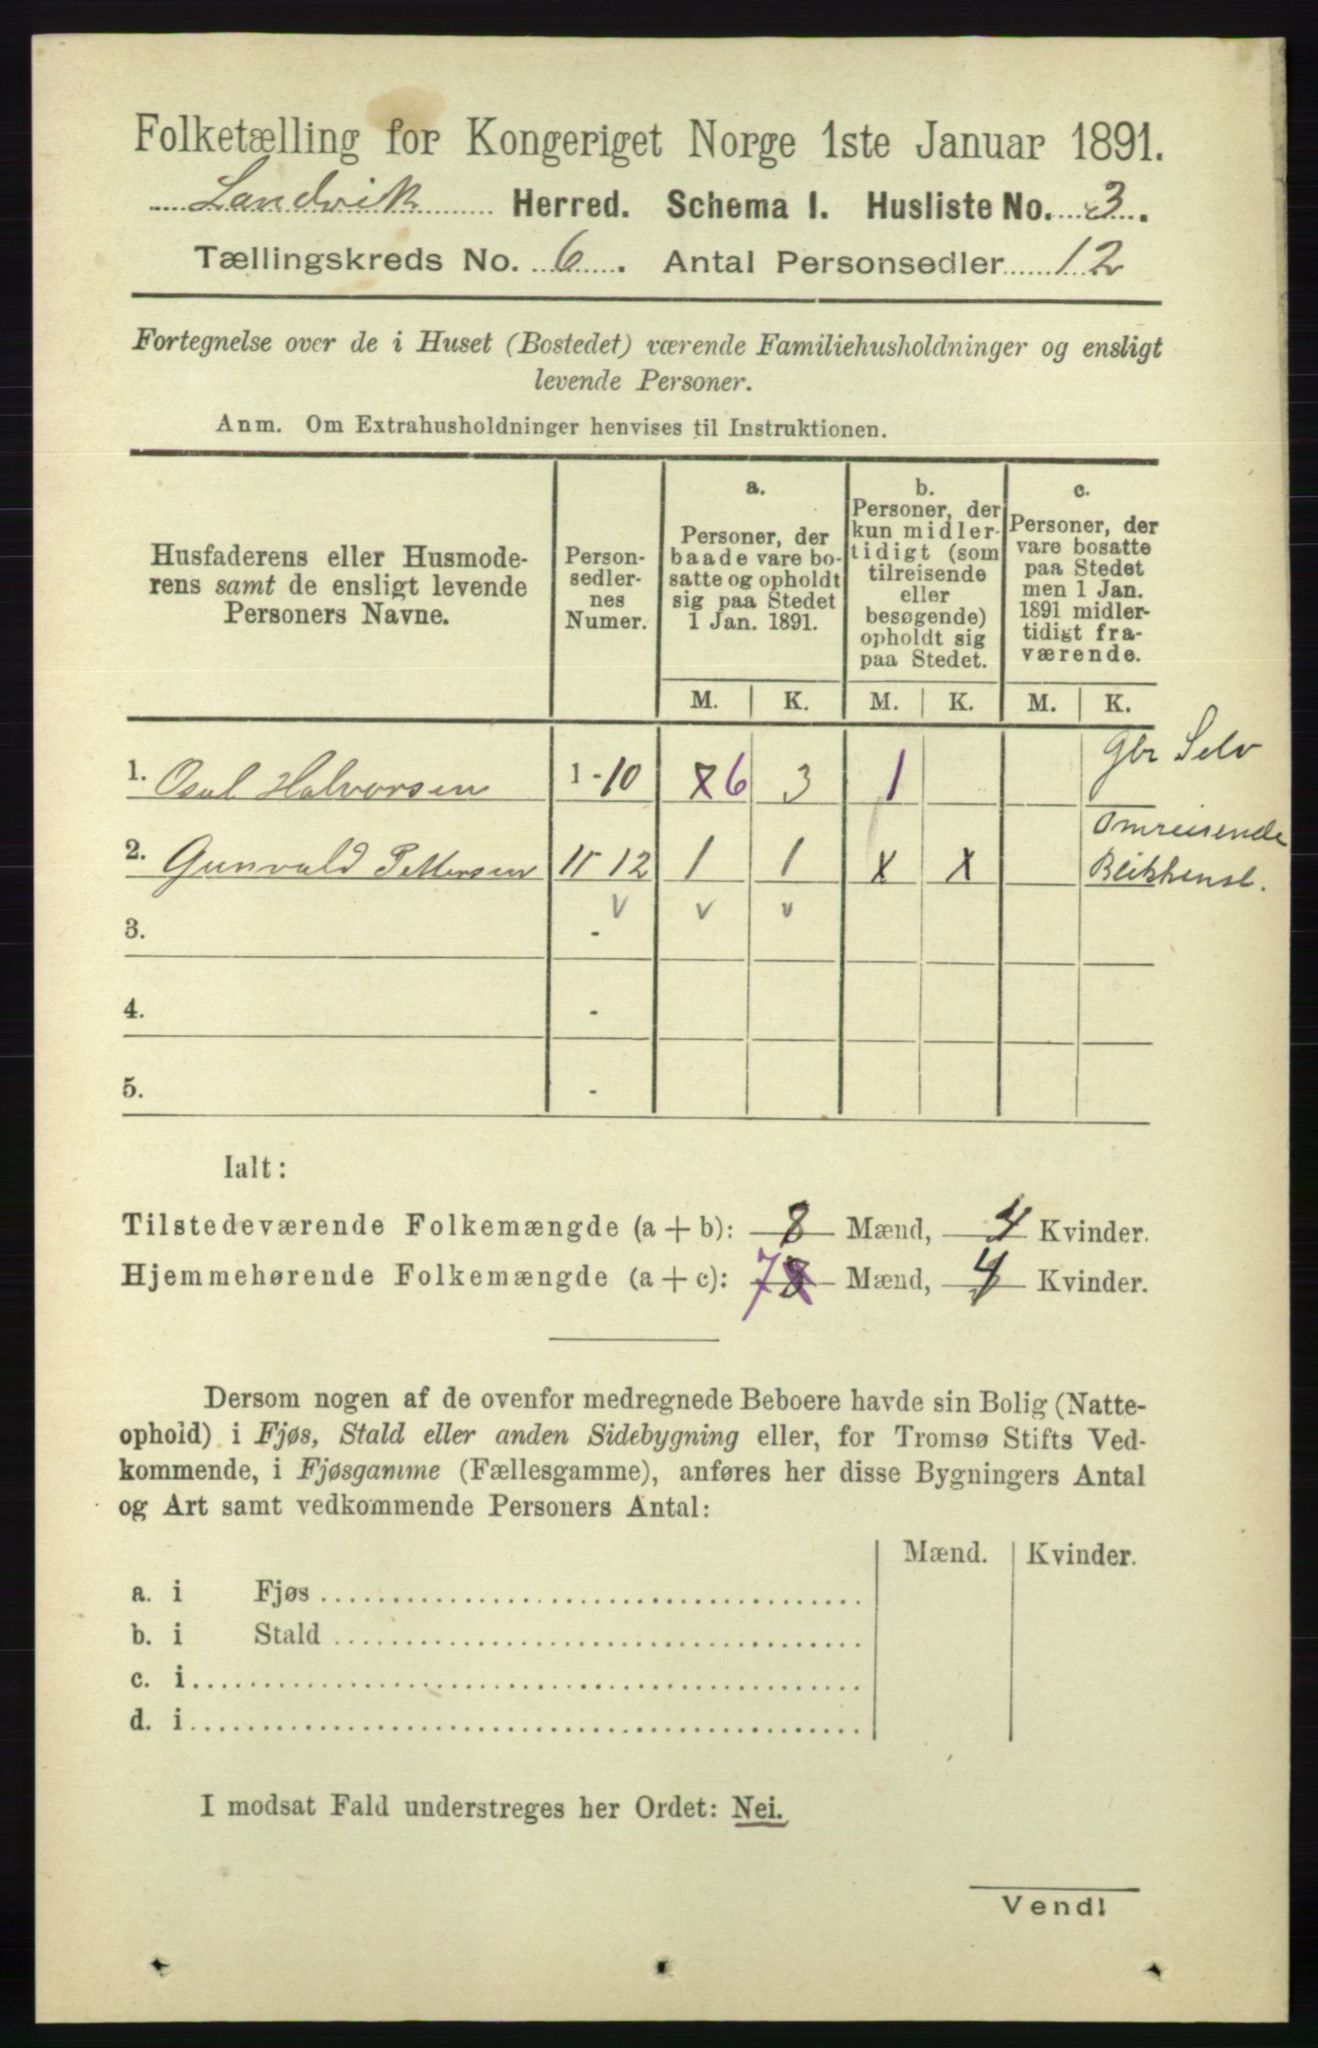 Folketælling for Kongeriget Norge 1ste Januar 1891.
Landvik Herred. Schema I. Husliste No. 3.
Tællingskreds No. 6. Antal Personsedler 12
Fortegnelse over de i Huset (Bostedet) værende Familiehusholdninger og ensligt
levende Personer.
Anm. Om Extrahusholdninger henvises til Instruktionen.
Husfaderens eller Husmode-
rens samt de ensligt levende
Personers Navne.
Person-
sedler-
nes
Numer.
a.
Personer, der
baade vare bo-
satte og opholdt
sig paa Stedet
1 Jan. 1891.
b.
Personer, der
kun midler-
tidigt (som
tilreisende
eller
besøgende)
opholdt sig
paa Stedet.
c.
Personer, der
vare bosatte
paa Stedet
men 1 Jan.
1891 midler-
tidigt fra-
værende.
M. K. M. K. M. K.
1. Osul Halvorsen 1-10 x6 3 1 Gbr Selv
2. Gunvald Pettersen 11-12 1 1 x x Omreisende
Blikkensl.
v v v
3. -
4. -
5. -
Ialt:
Tilstedeværende Folkemængde (a + b): 8 Mænd, 4 Kvinder.
Hjemmehørende Folkemængde (a + c): 7 8 Mænd, 4 Kvinder.
Dersom nogen af de ovenfor medregnede Beboere havde sin Bolig (Natte-
ophold) i Fjøs, Stald eller anden Sidebygning eller, for Tromsø Stifts Ved-
kommende, i Fjøsgamme (Fællesgamme), anføres her disse Bygningers Antal
og Art samt vedkommende Personers Antal:
Mænd. Kvinder.
a. i Fjøs
b. i Stald
c. i
d. i
I modsat Fald understreges her Ordet: Nei.
Vend!